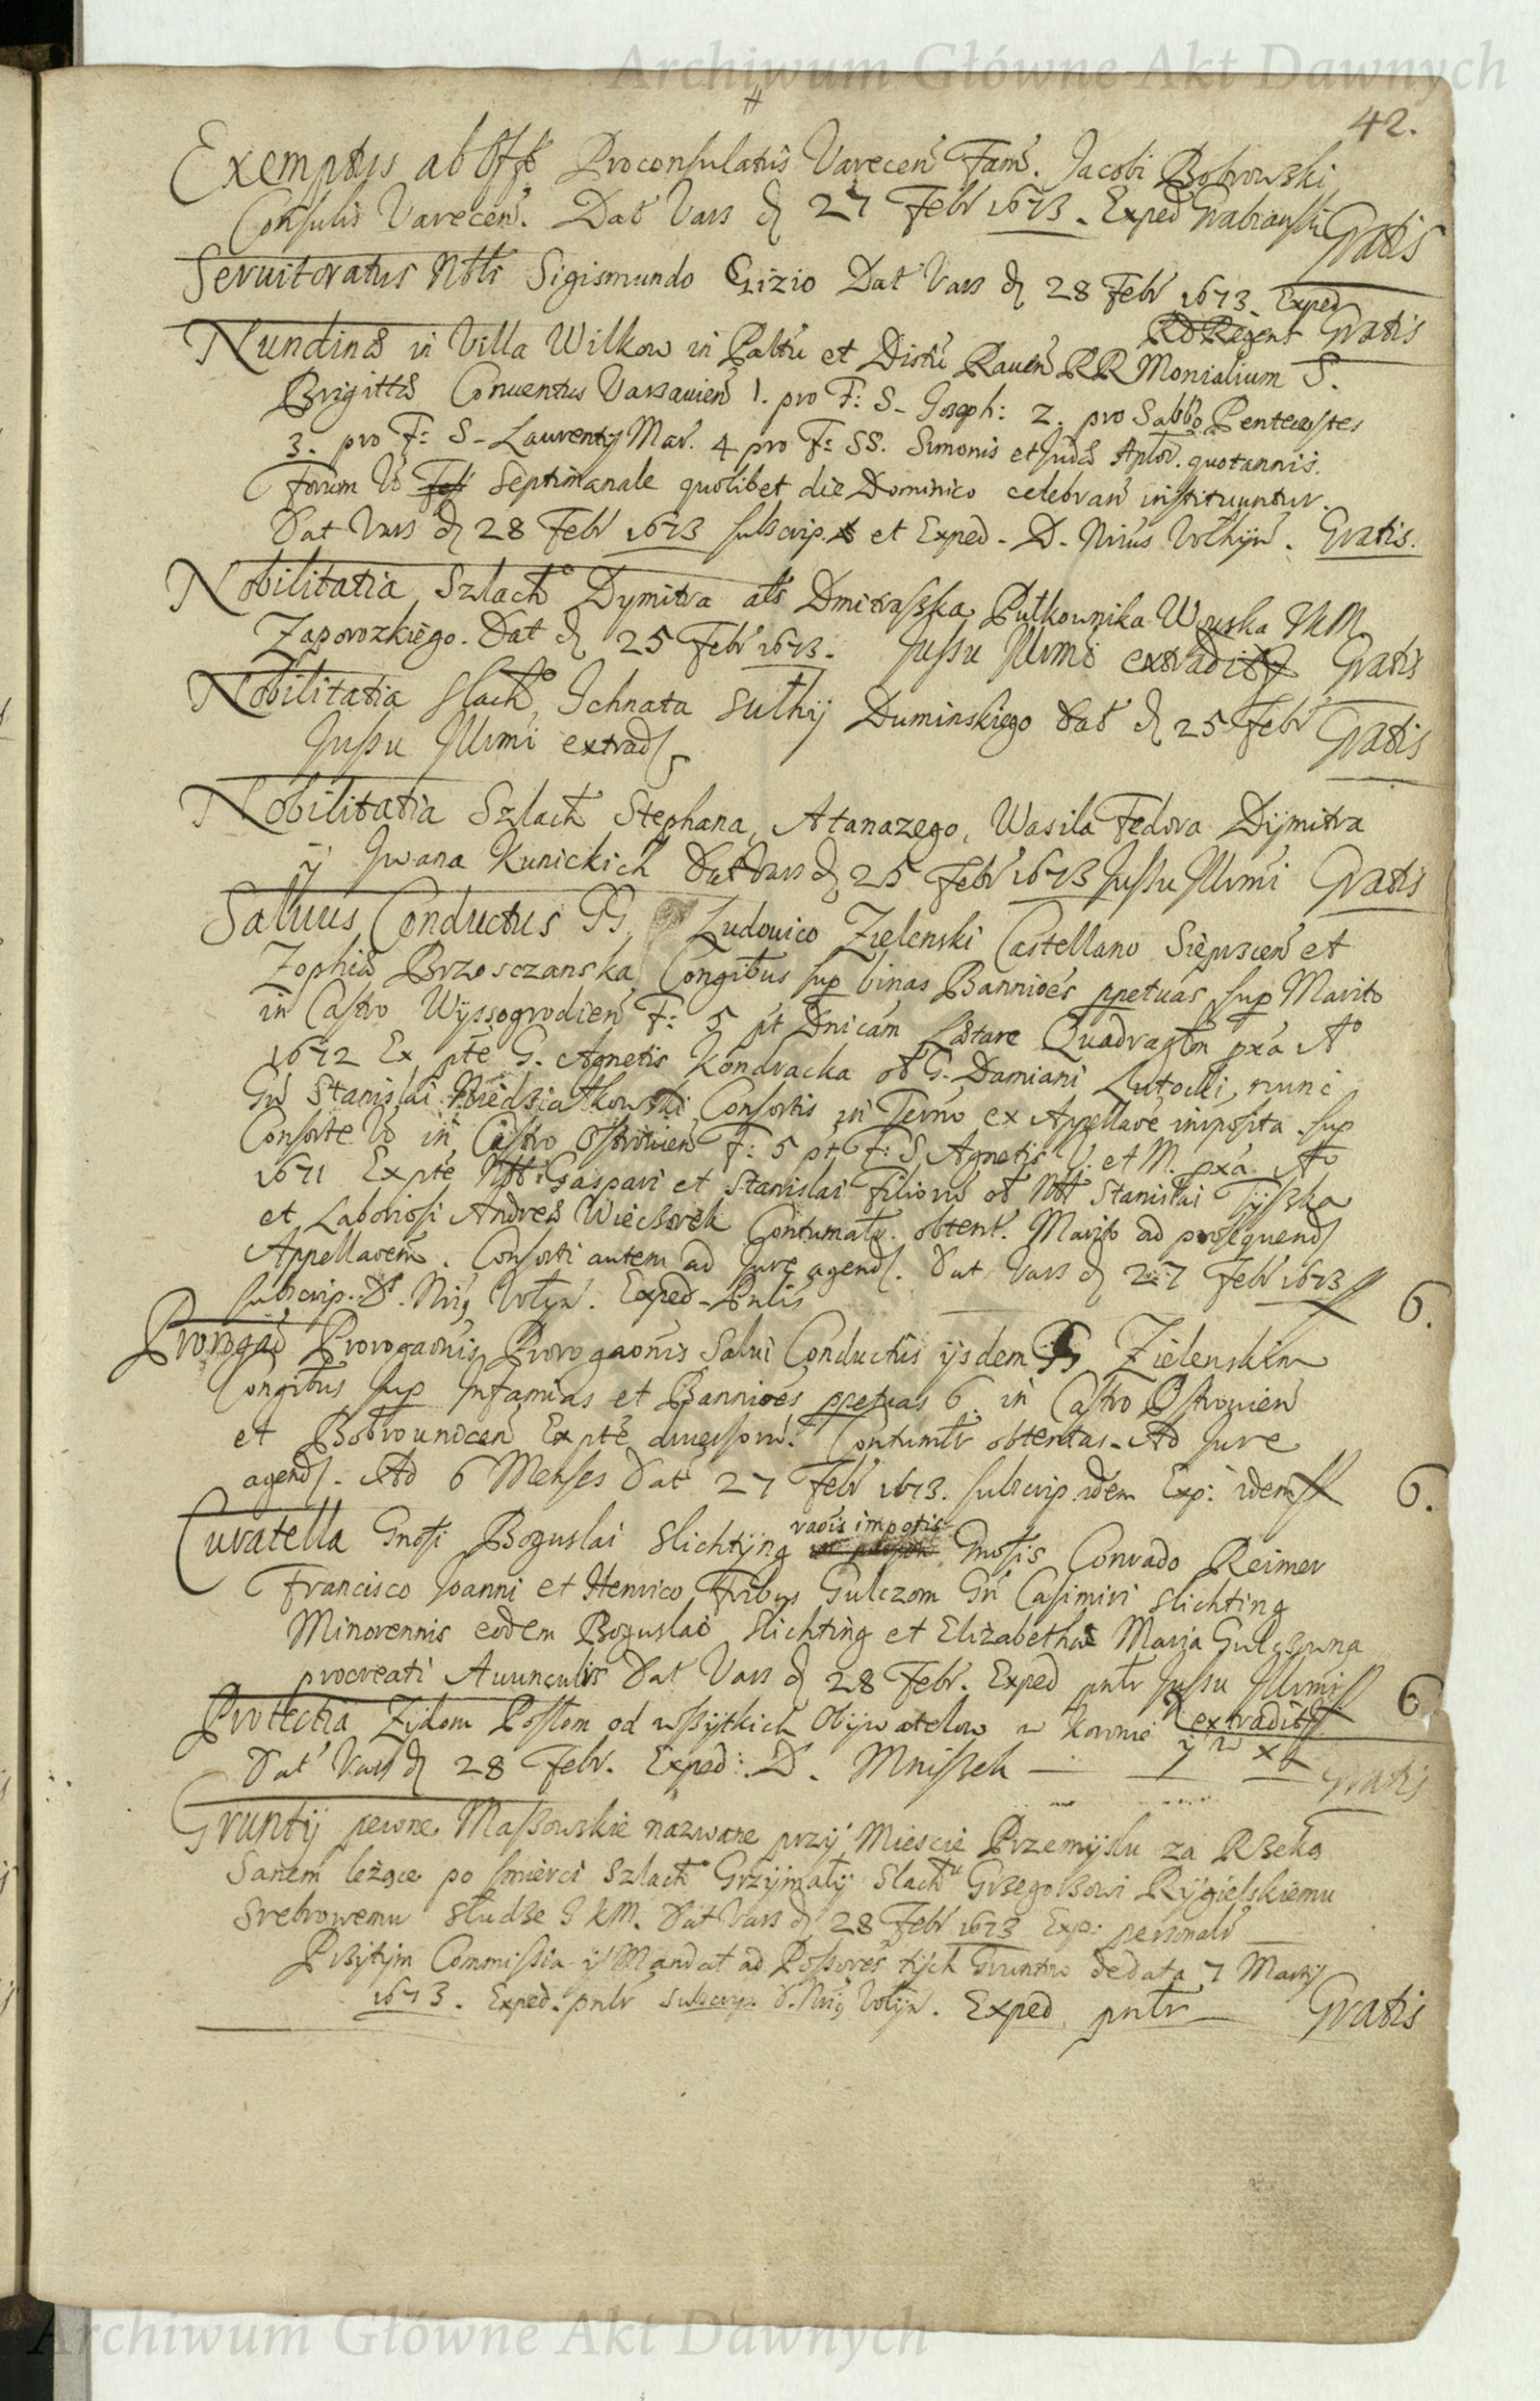 Archiwum Główne Akt Dawnych
42.
Exemptus ab Offo Proconsulatus Varecen Fam. Jacobi Bobrowski
Consulis Varecen. Dat Vars d 27 Febr 1673. Exped Grabianski Gratis
Servitoratus Nbli Sigismundo Gizio Dat Vars d 28 Febr 1673. Exped
RD Regent Gratis
Nundinae in Villa Wilkow in Paltu et Distu Raven RR Monialium S.
Brigittae Conventus Varsavien 1. pro F: S. Joseph: 2. pro Sabbo Pentecostes
3. pro F: S. Laurentij Mar. 4 pro F: SS. Simonis et Judae Aplor. quotannis.
Forum Vo Septimanale quolibet die Dominico celebran instituuntur.
Dat Vars d 28 Febr 1673 subscrip. et Exped. D. Nrius Volhyn. Gratis.
Nobilitatia Szlach Dymitra als Dmitraszka Pulkownika Woyska JKM
Zaporozkiego. Dat d 25 Febr 1673. Jussu Illrmi extradit Gratis
Nobilitatia Slach Ichnata Sulhij Duminskiego Dat d 25 Febr Gratis
Jussu Illrmi extrad
Nobilitatia Szlach Stephana, Atanazego, Wasila Fedora Dymitra
ÿ Jwana Kunickich Dat Vars d 25 Febr 1673 Jussu Illrmi Gratis
Salvus Conductus GG. Ludovico Zielenski Castellano Sieprscen et
Zophiae Brzosczanska Congibus sup binas Banniões ppetuas sup Marito
in Castro Wyssogrodien F: 5 pt Dnicam Laetare Quadragtm pxa Ao
1672 Ex pte G. Agnetis Kondracka ol G. Damiani Lutocki nunc
Gn Stanislai Niedzialkowski Consortis in Termo ex Appellaõe imposita sup
Consorte Vo in Castro Ostrovien F: 5 pt F: S Agnetis V. et M. pxa Ao
1671 Ex pte Nbl Gaspari et Stanislai Filiorũ ol Nbl Stanislai Tyszka
et Laboriosi Andreae Wieczorek Contumatr. obtent. Marito ad prosequend
Appellaõem. Consorti autem ad Jure agend. Dat Vars d 27 Febr 1673
subscrip. D. Nrig Volyn. Exped. Pntis 6.
Prorogao Prorogaonis Prorogaonis Salvi Conductus ijsdem GG Zielenskim
Congibus sup Infamias et Banniões ppetuas 6. in Castro Ostrovien
et Bobrownicen Ex pte diversorũ. Contumtr obtentas. Ad Jure
agend. Ad 6 Menses Dat 27 Febr 1673. subscrip. idem Exp: idem 6.
Curatella Gnosi Boguslai Slichtÿng raõis impotis Gnosis Conrado Reimer
Francisco Joanni et Henrico Fribus Gulczom Gn Casimiri Slichting
Minorennis eodem Boguslao Slichting et Elizabetha Maria Gulczowna
procreati Avunculis Dat Vars d 28 Febr. Exped pntr Jussu Illrmi 6
Protectia Zydom Posłom od wszytkich Obywatelow w Koronie extradit
ÿ w XL
Dat Vars d 28 Febr. Exped: D. Mniszek Gratis
Grunty pewne Maszowskie nazwane przÿ Miescie Przemyslu za Rzeką
Sanem leżące po smierci Szlach Grzymały Slach Grzegorzowi Rygielskiemu
Srebrowemu Słudze J K M. Dat Vars d 28 Febr 1673 Exp: personalr
Przytym Commissia ÿ Mandat ad Possores tych Gruntow de data 7 Martij
1673. Exped. pntr Subscrip. D. Nrig Volyn. Exped pntr Gratis
Archiwum Główne Akt Dawnych